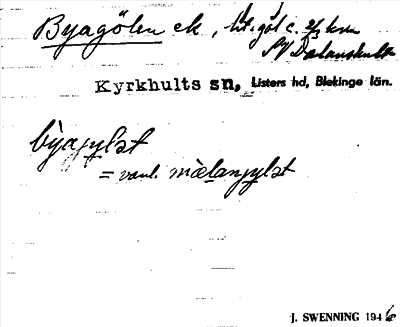 Byagölen ek, lit. göl c. 2/3 km
SV Dalanshult
Kyrkhults sn, Listers hd, Blekinge län.
bỳaɟylət
= vanl. mælanɟylət
J. SWENNING 1946